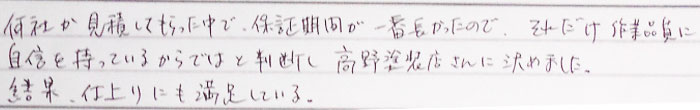 何社か見積してもらった中で、保証期間が一番長かったので、それだけ作業品質に
自信を持っているからではと判断し高野塗装店さんに決めました。
結果、仕上りにも満足している。